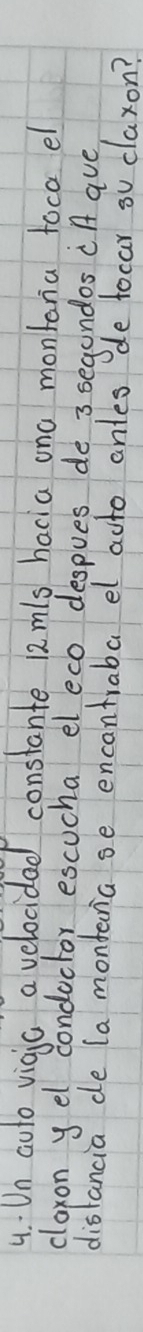 4.- Un auto viaja a velocidad constante 12 m/s hacia una montaña toca el
cloxon y el conductor escucha el eco despues de 3 segundos ¿A que
distancia de la montaña se encontraba el auto antes de tocar su claxon?